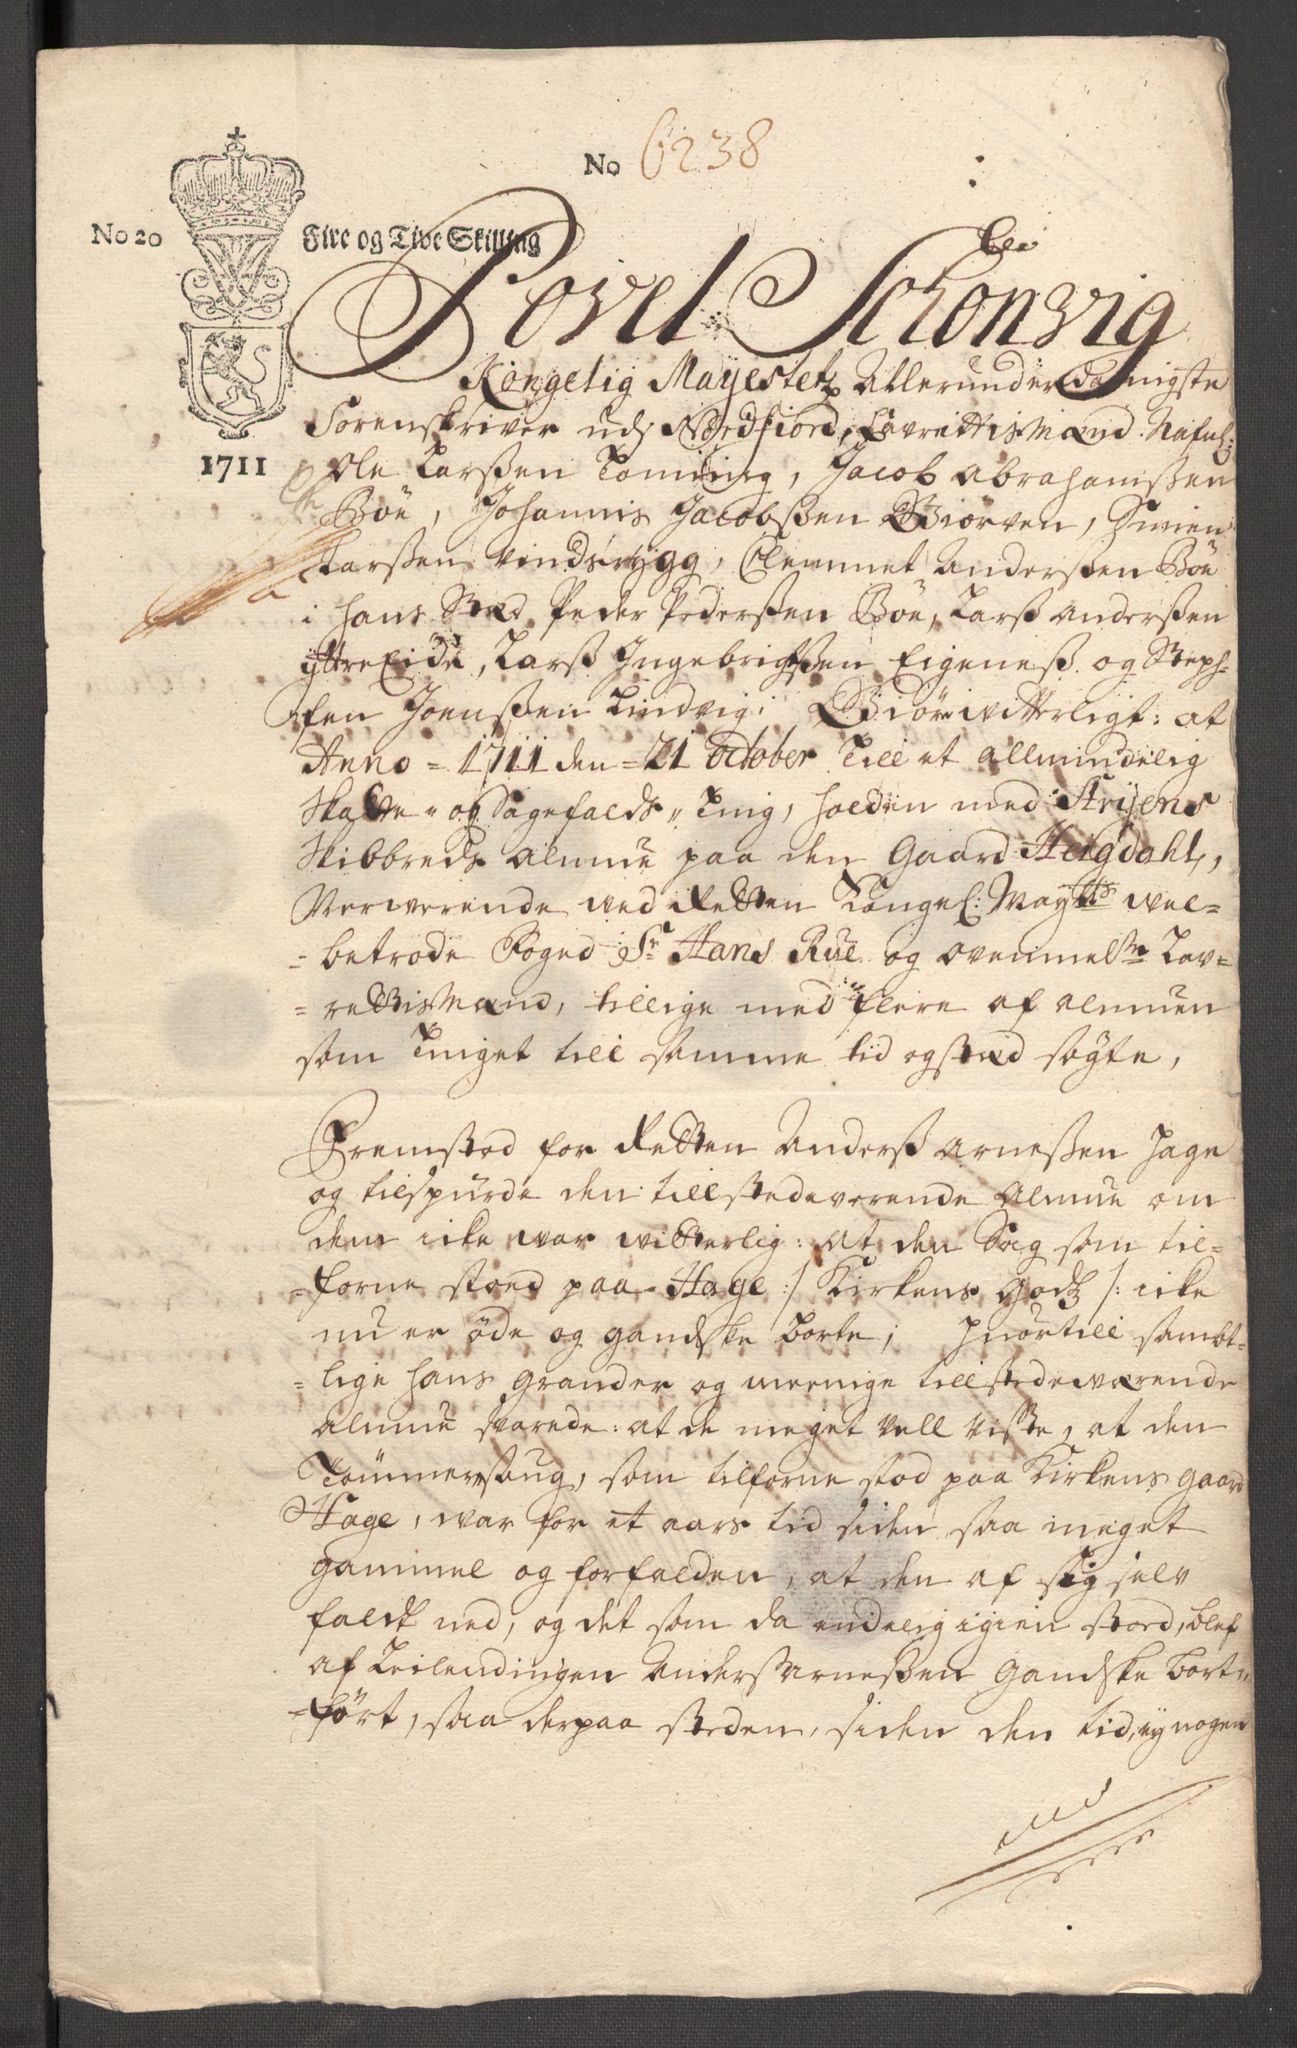 No 6238
No 20
Fire og Tive Skilling
1711
Povel Schonvig
Kongelig Mayestetz Allerunderdanigste
Sorenskriver udj Nordfiord, Laurettismænd Nafnl:
Ole Larßen Toning, Jacob Abrahamßen
Bøe, Johannis Jacobßen Giørven, Simen
Larßen Vindsrygg, Clemmet Anderßen Bøe
i hans Sted Peder Pederßen Bøe, Larß Anderßen
yttre Eide, Larß Ingebrigtßen Eigeneß og Steph-
fen Joenßen Lindvig; Giør witterligt: at
Anno = 1711 den = 21 October Till et allmindelig
Skatte = og Sagefalds = Ting, holden med Stryens
Skibbreds almue paa den Gaard Helgdahl,
Nerwerende wed Retten Kongel: Maytts wel=
=betrode Foged Sr Hans Rue og ovenmelte Lav=
=rettismænd, tillige med flere af almuen
som Tinget till samme tid og sted søgte,
Fremstod for Retten Anderß Arneßen Hage
og tilspurde den tillstedeverende almue om
dem icke war witterlig: at den Sag som til=
=forne stoed paa Hage :/ Kirkens Godtz /: icke
nu er øde og gandske borte; Huortill sambt=
=lige hans grander og meenige tillstedewærende
almue svarede: at de meget vell viste, at den
Tømmersaug, som tilforne stod paa Kirkens gaard
Hage, war for et aars tid siden saa meget
gammel og forfalden, at den af sig selv
faldt ned, og det som da endelig igien stoed, blef
af Leilendingen Anderß Arneßen Gandske bort=
=ført, saa derpaa steden, siden den tid, ey nogen